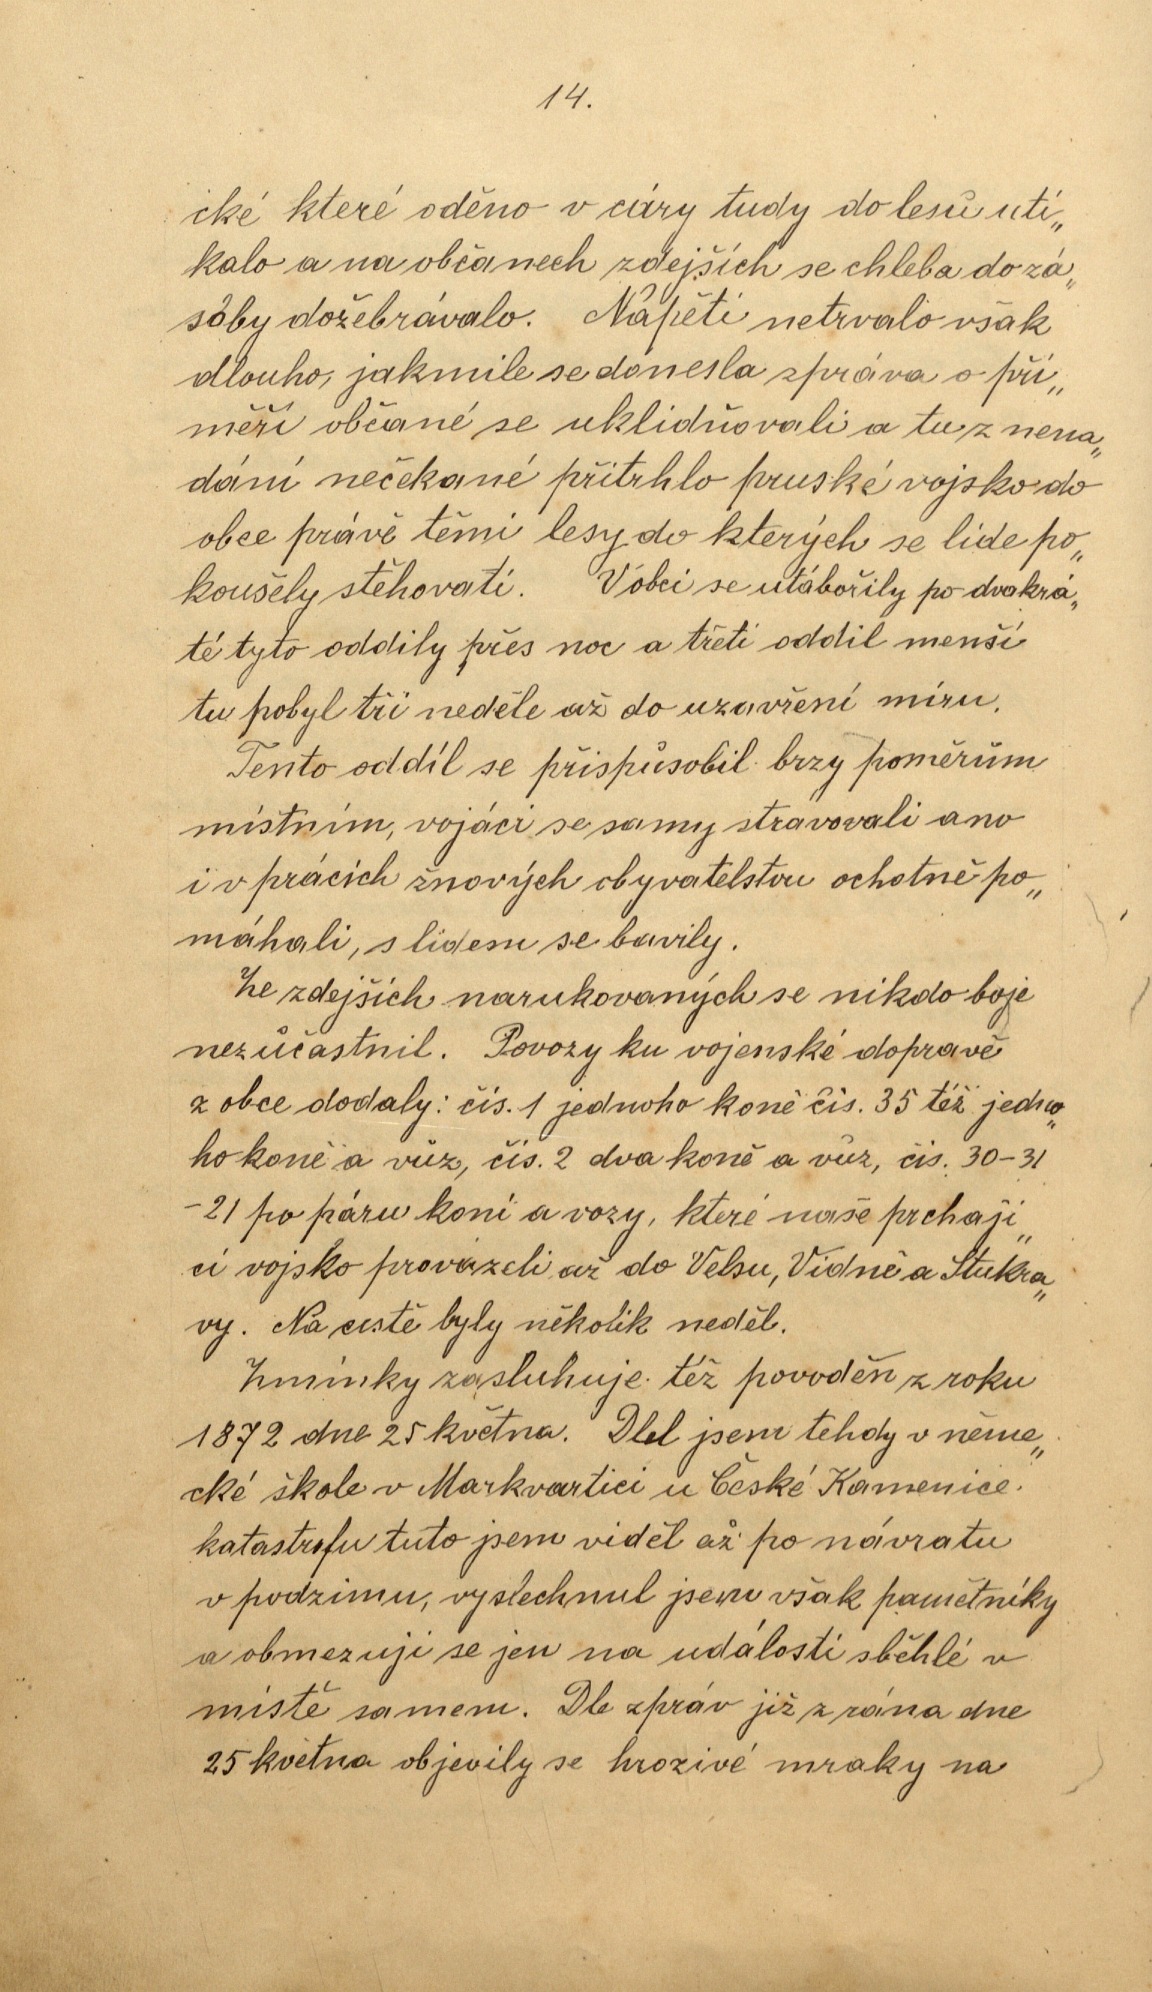 14.
ické které oděno v cáry tudy do lesů utí„
kalo a na občanech zdejších se chleba do zá„
soby dožebrávalo. Nápětí netrvalo však
dlouho, jakmile se donesla zpráva o pří„
měří občané se uklidňovali a tu z nena„
dání nečekané přitrhlo pruské vojsko do
obce právě těmi lesy do kterých se lide po„
koušely stěhovati. V obci se utábořily po dvakrá„
té tyto oddily přes noc a třetí oddil menší
tu pobyl tři neděle až do uzavření míru.
Tento oddíl se přispůsobil brzy poměrům
místním, vojáci se samy stravovali ano
i v prácích žnových obyvatelstvu ochotně po„
máhali, s lidem se bavily.
Ze zdejších narukovaných se nikdo boje
nezůčastnil. Povozy ku vojenské dopravě
z obce dodaly: čís. 1 jednoho koně čís. 35 též jedno„
ho koně a vůz, čís. 2 dva koně a vůz, čís. 30-31
-21 po páru koní a vozy, které naše prchají„
cí vojsko provázeli až do Velsu, Vídně a Štukra„
vy. Na cestě byly několik neděl.
Zmínky zasluhuje též povoděň z roku
1872 dne 25 května. Dlel jsem tehdy v něme„
cké škole v Markvartici u České Kamenice.
katastrofu tuto jsem viděl až po návratu
v podzimu, vyslechnul jsem však pamětníky
a obmezuji se jen na události sběhlé v
místě samem. Dle zpráv již z rána dne
25 května objevily se hrozivé mraky na